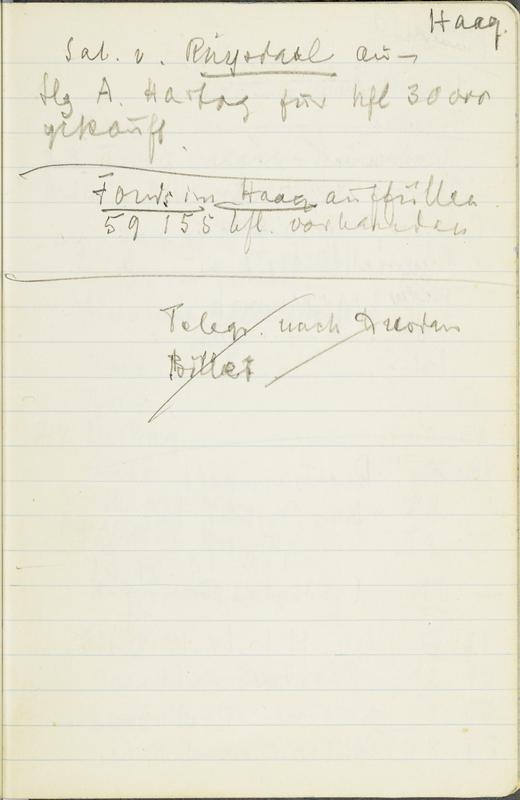 Haag.
Sal. v. Ruysdael aus
Slg A. Hartog für hfl 30 000
gekauft.
Fonds im Haag auffüllen
59 155 hfl. vorhanden
Telegr. nach Dresden
Billet